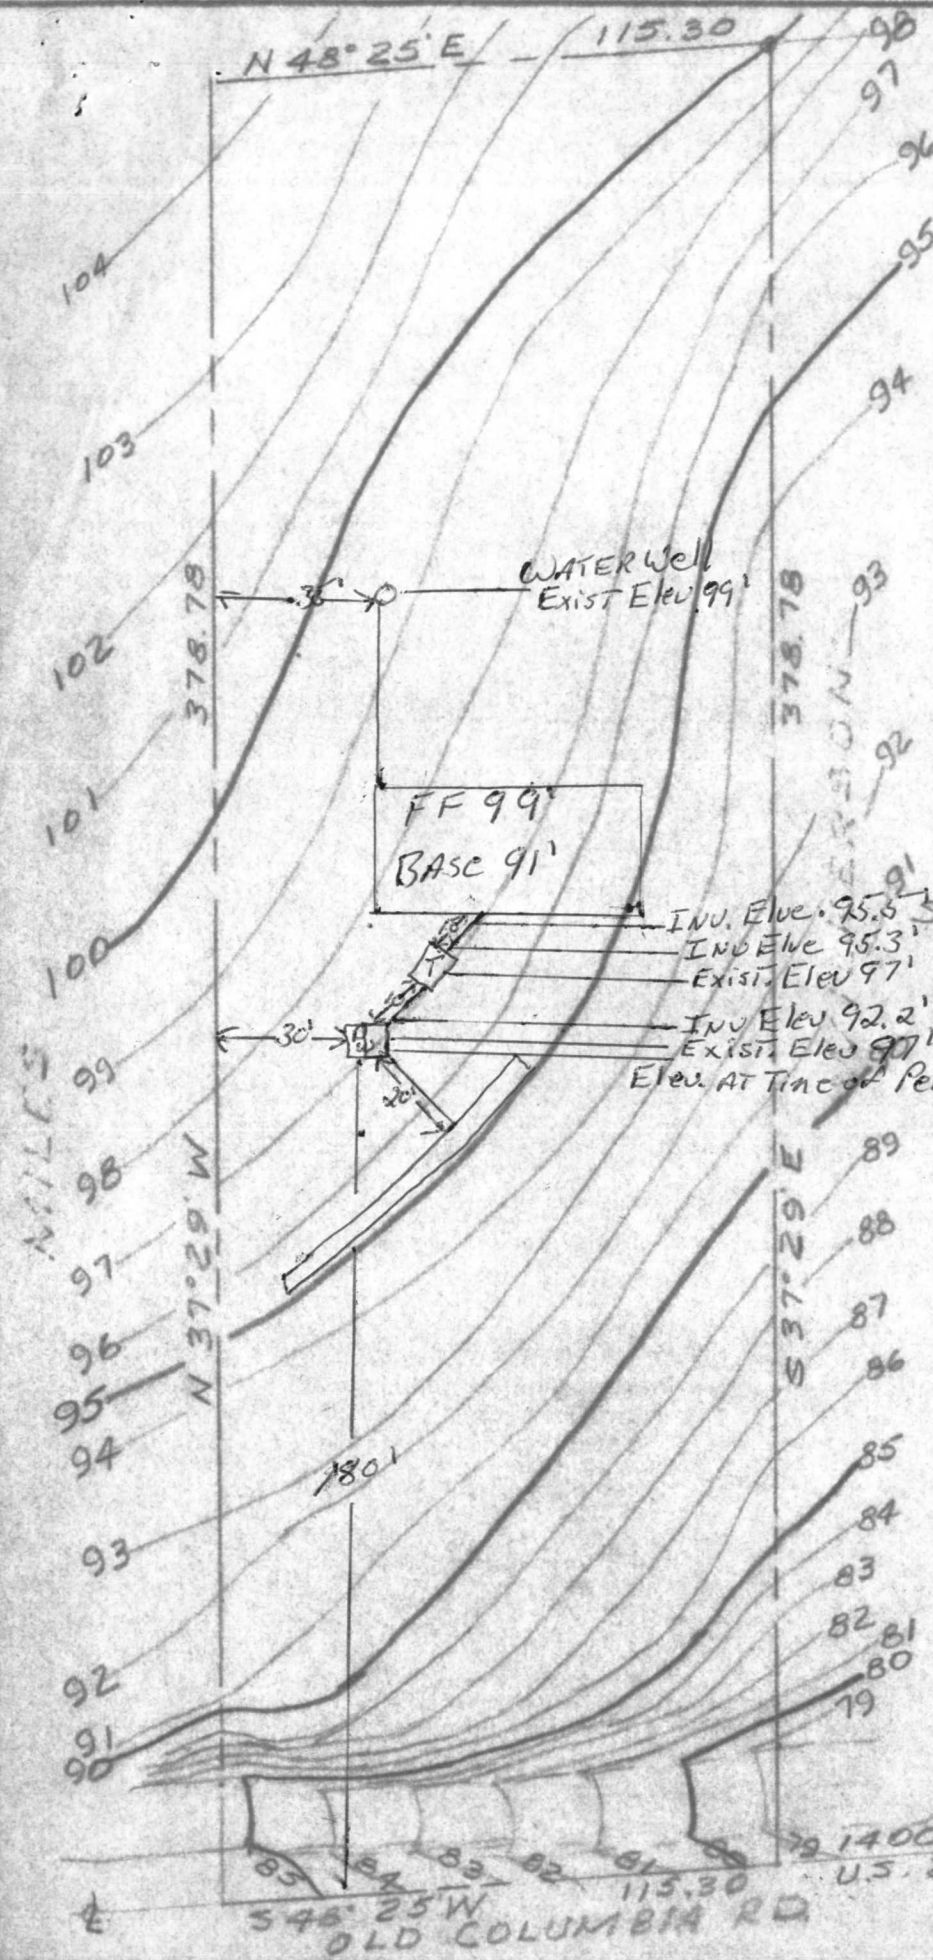 N 48° 25' E 115.30
98
97
96
95
94
93
92
91
104
103
102
101
100
99
98
97
96
95
94
93
92
91
90
378.78
378.78
35'
WATER Well
Exist Elev 99'
FF 99'
BASE 91'
INV. Elve. 95.5'
INV Elve 95.3'
Exist. Elev 97'
INV Elev 92.2'
Exist. Elev 97'
Elev. AT Time of
T
30'
20'
N 37° 29' W
S 37° 29' E
180'
89
88
87
86
85
84
83
82
81
80
79
85
84
83
82
81
80
79
1400
U.S.
S 48° 25' W
115.30
OLD COLUMBIA RD.